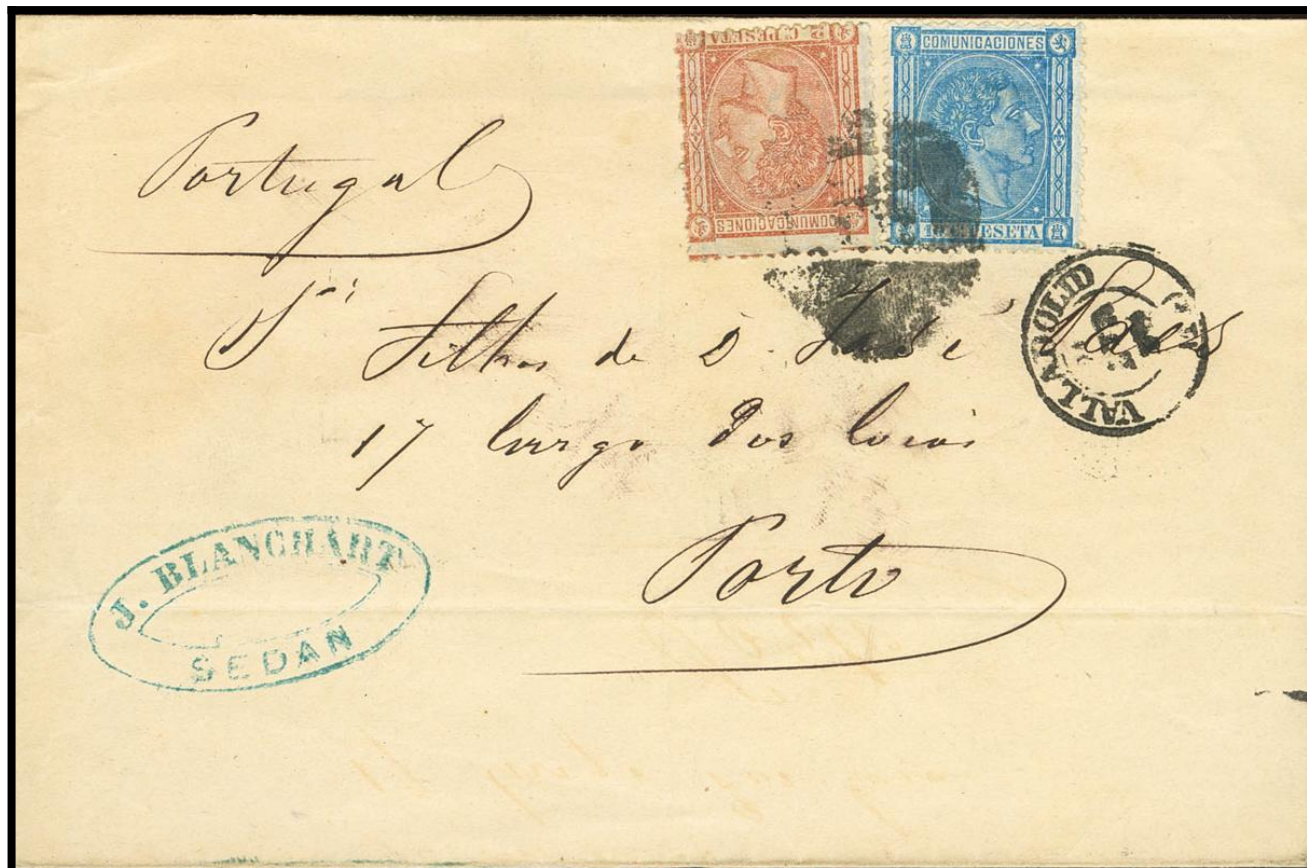 C. PESETA
COMUNICACIONES
COMUNICACIONES
PESETA
Portugal
VALLADOLID
Srs Filhos de D. José Paes
17 largo dos Loios
Porto
J. BLANCHART
SEDAN